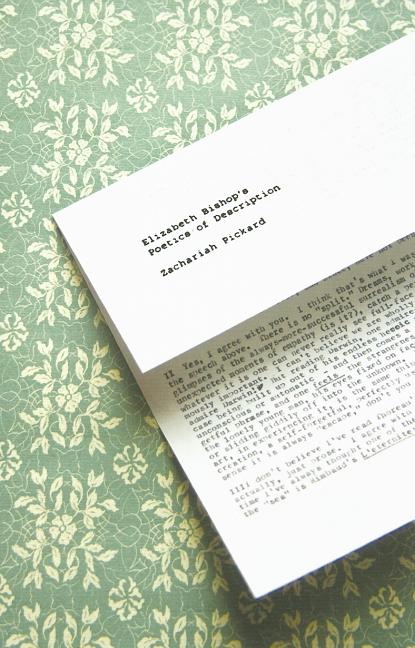 Elizabeth Bishop's
Poetics of Description
Zachariah Pickard
II Yes, I agree with you. I think that's what i was
the speech above. There is no "split." Dreams, wor
glimpses of the always-more-successful surrealism
unexpected moments of empathy (is it?), catch a pe
whatever it is one can never really see full-face
mously important. I can't
admire Darwin But reading Darwin, one admires
case being built up out of his endless
unconscious or automatic — and then comes a
getful phrase, and one feels the strangeness
the lonely young man, his eyes fixed on fa
or sliding giddily off into the unknown
art, in experiencing it, is the same thi
creation, a self-forgetful, perfectly
sense it is always "escape," don't
III: I don't believe I've read
actually, just prose.
time I've always thought one of the
the "sea" is Rimbaud's L'eternite